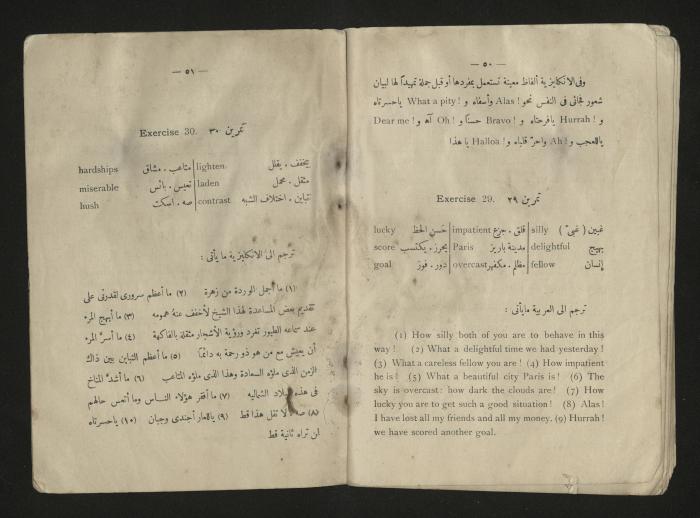 — ٥٠ —
وفى الانكليزية ألفاظ معينة تستعمل بمفردها أو قبل جملة تمهيداً لها لبيان
شعور فجائى فى النفس نحو ! Alas وأسفاه و ! What a pity ياحسرتاه
و ! Hurrah يافرحتاه و ! Bravo حسناً و ! Oh آه و ! Dear me
ياللعجب و ! Ah واحرّ قلباه و ! Halloa يا هذا
Exercise 29. تمرين ٢٩
lucky حَسن الحظ impatient قلق . جزع silly غبين ( غبى )
score يحرز. يكتسب Paris مدينة باريز delightful بهيج
goal دور . فوز overcast مظلم . مكفهر fellow إنسان
ترجم الى العربية مايأتى :
(1) How silly both of you are to behave in this
way ! (2) What a delightful time we had yesterday !
(3) What a careless fellow you are ! (4) How impatient
he is ! (5) What a beautiful city Paris is ! (6) The
sky is overcast : how dark the clouds are ! (7) How
lucky you are to get such a good situation ! (8) Alas !
I have lost all my friends and all my money. (9) Hurrah !
we have scored another goal.
— ٥١ —
Exercise 30. تمرين ٣٠
hardships متاعب . مشاق lighten يخفف . يقلل
miserable تعيس . بائس laden مثقل . محمل
hush صه . اسكت contrast تباين . اختلاف الشبه
ترجم الى الانكليزية ما يأتى :
(١) ما أجمل الوردة من زهرة (٢) ما أعظم سرورى لقدرتى على
تقديم بعض المساعدة لهذا الشيخ لأخفف عنه همومه (٣) ما أبهج المرء
عند سماعه الطيور تغرد ورؤية الأشجار مثقلة بالفاكهة (٤) ما أسرّ المرء
أن يعيش مع من هو ذو رحمة به دائماً (٥) ما أعظم التباين بين ذاك
الزمن الذى ملؤه السعادة وهذا الذى ملؤه المتاعب (٦) ما أشدّ المناخ
فى هذه البلاد الشمالية (٧) ما أفقر هؤلاء النــاس وما أتعس حالهم
(٨) صه لا تقل هذا قط (٩) ياللعار أجندى وجبان (١٠) ياحسرتاه
لن تراه ثانية قط